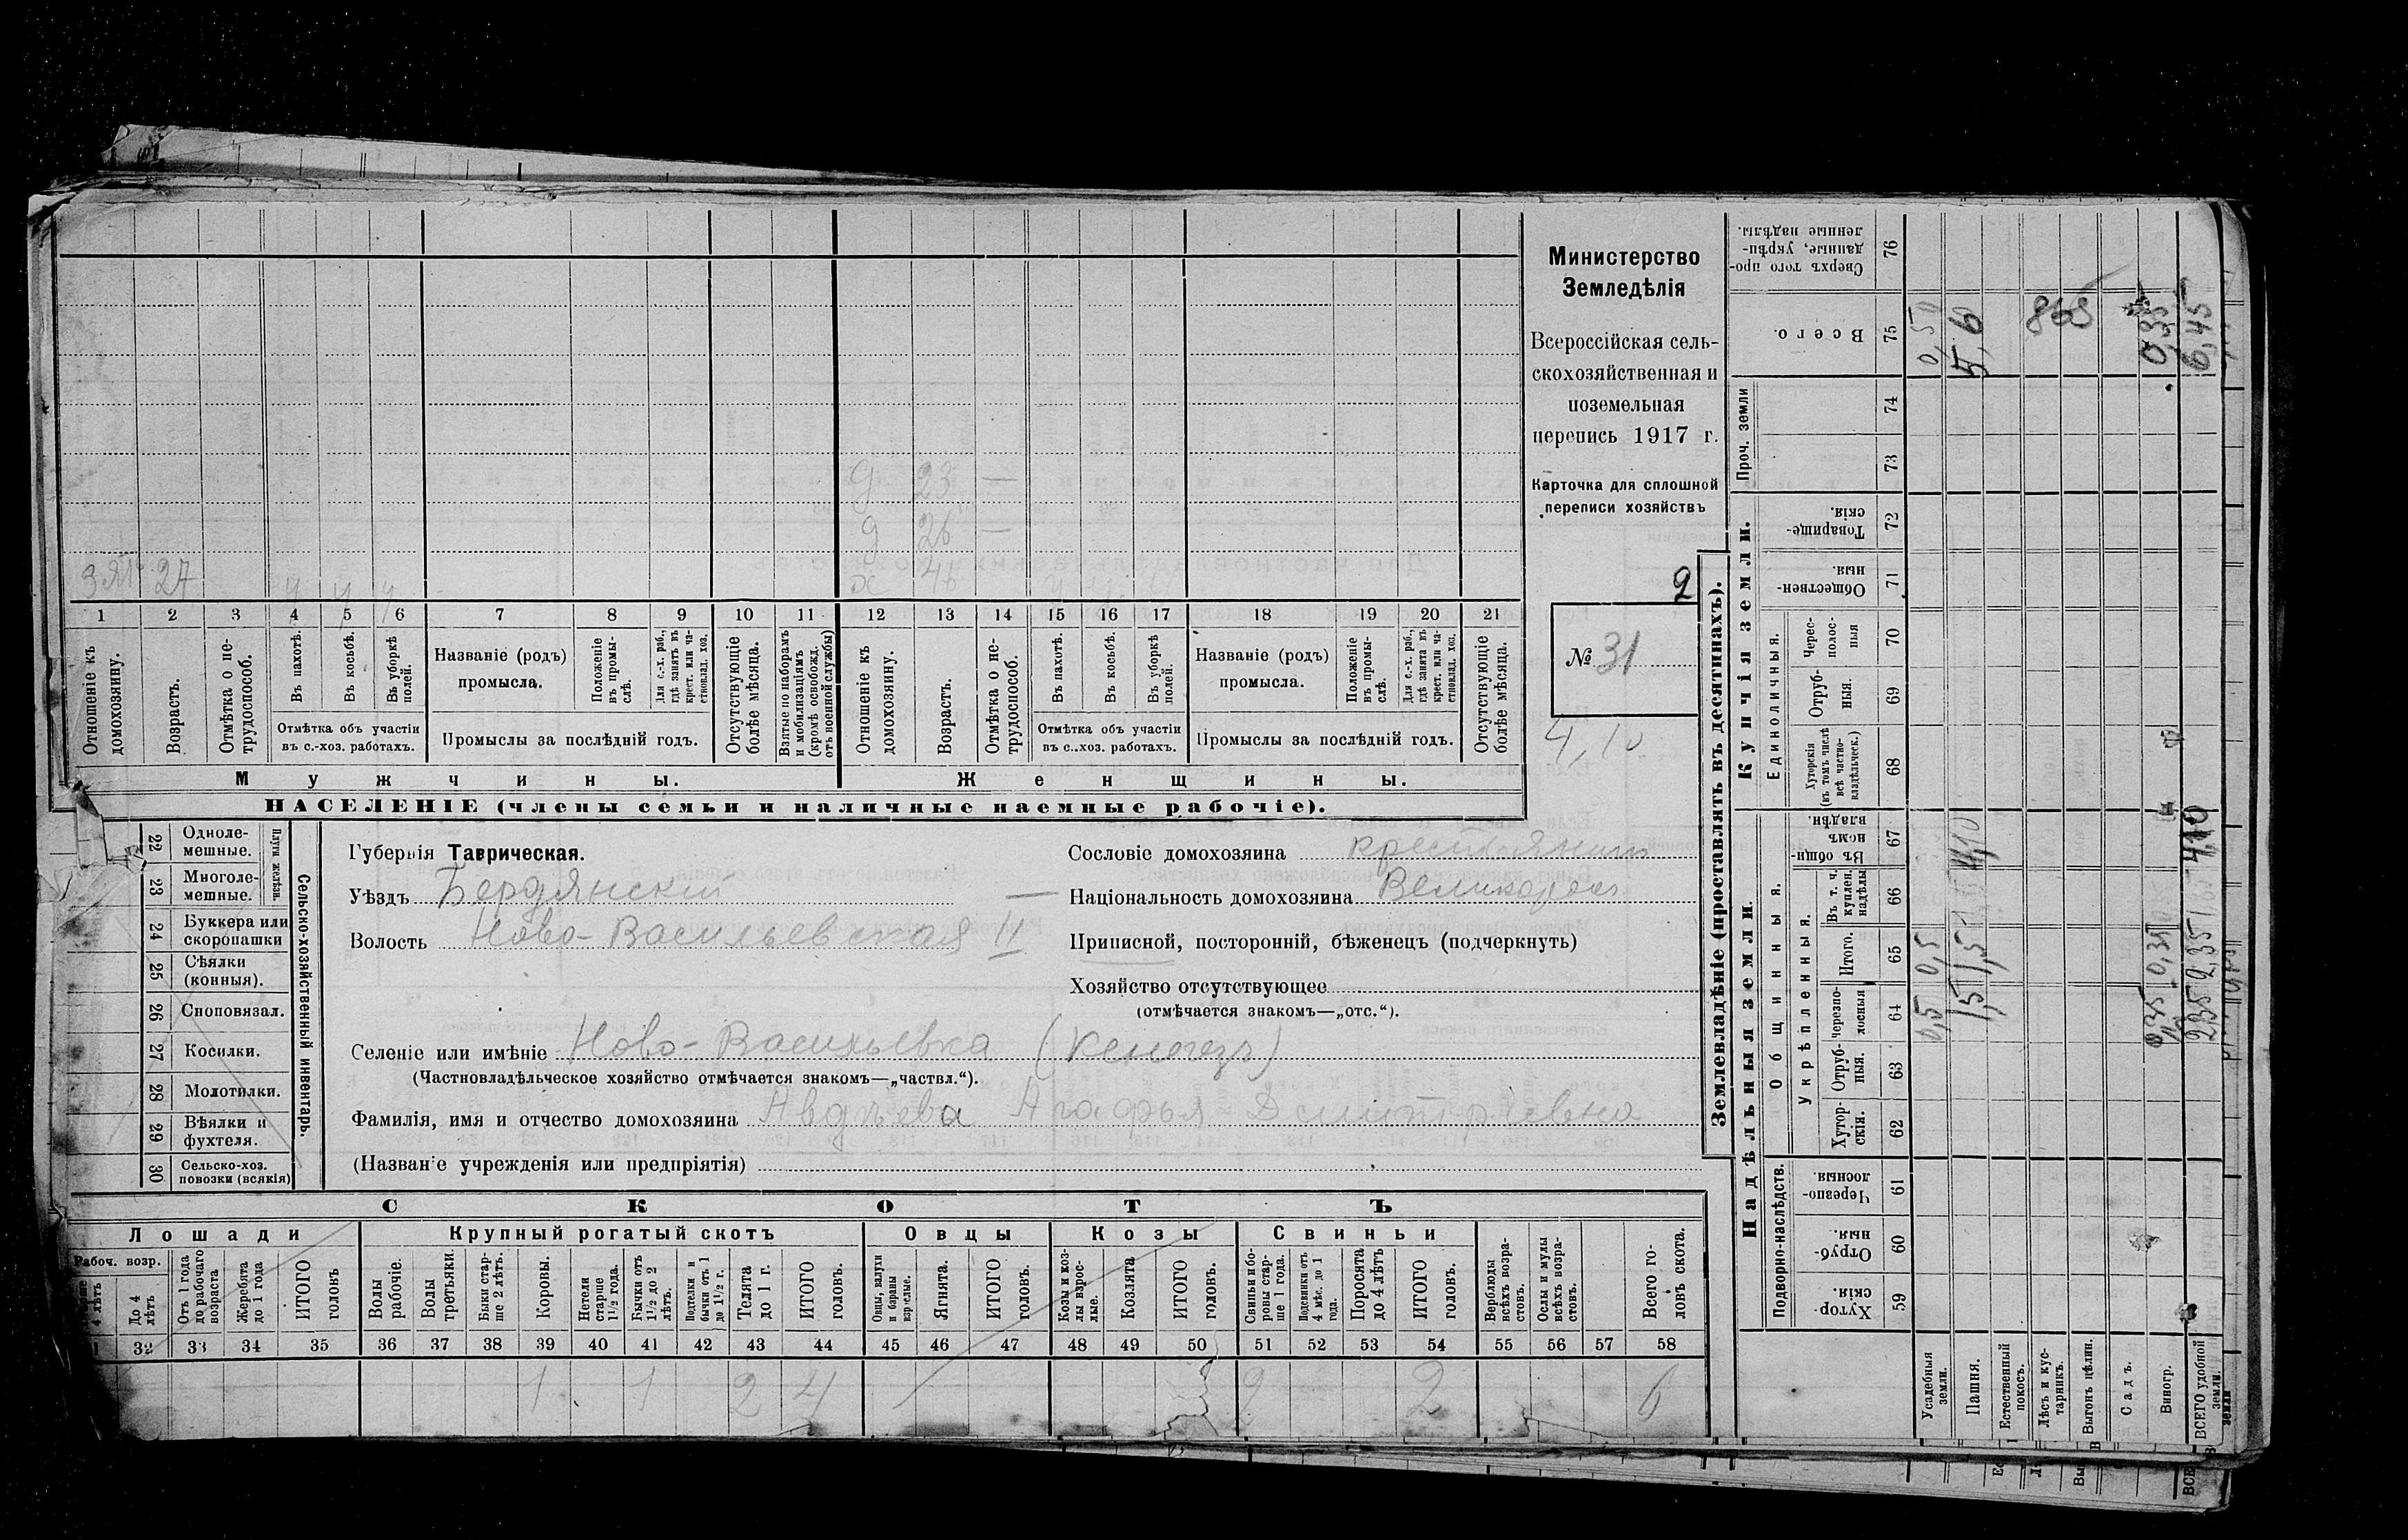 Министерство
Земледѣлія
Всероссійская сель-
скохозяйственная и
поземельная
перепись 1917 г.
Карточка для сплошной
переписи хозяйствъ
2
№ 31
4,10
д 23 —
д 26 —
х 46
зять 27 ч ч ч
1 2 3 4 5 6 7 8 9 10 11 12 13 14 15 16 17 18 19 20 21
Отношеніе къ домохозяину.
Возрастъ.
Отмѣтка о не-трудоспособ.
Въ пахотѣ.
Въ косьбѣ.
Въ уборкѣ полей.
Отмѣтка объ участіи
въ с.-хоз. работахъ.
Названіе (родъ)
промысла.
Положеніе въ промы-слѣ.
Для с.-х. раб., гдѣ занятъ въ крест. или ча-стновлад. хоз.
Промыслы за послѣдній годъ.
Отсутствующіе болѣе мѣсяца.
Взятые по наборамъ и мобилизаціямъ (кромѣ освобожд. отъ военной службы)
Отношеніе къ домохозяину.
Возрастъ.
Отмѣтка о не-трудоспособ.
Въ пахотѣ.
Въ косьбѣ.
Въ уборкѣ полей.
Отмѣтка объ участіи
въ с.-хоз. работахъ.
Названіе (родъ)
промысла.
Положеніе въ промы-слѣ.
Для с.-х. раб., гдѣ занята въ крест. или ча-стновлад. хоз.
Промыслы за послѣдній годъ.
Отсутствующіе болѣе мѣсяца.
Мужчины. Женщины.
НАСЕЛЕНІЕ (члены семьи и наличные наемные рабочіе).
Сельско-хозяйственный инвентарь.
Плуги желѣзн.
22 Одноле-мешные.
23 Многоле-мешные.
24 Буккера или скоропашки
25 Сѣялки (конныя).
26 Сноповязал.
27 Косилки.
28 Молотилки.
29 Вѣялки и фухтеля.
30 Сельско-хоз. повозки (всякія)
Губернія Таврическая.
Уѣздъ Бердянскій —
Волость Ново-Васильевская II
Сословіе домохозяина крестьянинъ
Національность домохозяина Великорос
Приписной, посторонній, бѣженецъ (подчеркнуть)
Хозяйство отсутствующее
(отмѣчается знакомъ—„отс.“).
Селеніе или имѣніе Ново-Васильевка (Кенегезъ)
(Частновладѣльческое хозяйство отмѣчается знакомъ—„частвл.“).
Фамилія, имя и отчество домохозяина Авдѣева Агафья Дмитріевна
(Названіе учрежденія или предпріятія)
СКОТЪ
Лошади Крупный рогатый скотъ Овцы Козы Свиньи
Рабоч. возр.
4 лѣтъ
До 4 лѣтъ
Отъ 1 года до рабочаго возраста
Жеребята до 1 года
ИТОГО головъ
Волы рабочіе.
Волы третьяки.
Быки стар-ше 2 лѣтъ.
Коровы.
Нетели старше 1½ года.
Бычки отъ 1½ до 2 лѣтъ.
Подтелки и бычки отъ 1 до 1½ г.
Телята до 1 г.
ИТОГО головъ.
Овцы, валухи и бараны взрослые.
Ягнята.
ИТОГО головъ.
Козы и коз-лы взрос-лые.
Козлята
ИТОГО головъ.
Свиньи и бо-ровы стар-ше 1 года.
Подсвинки отъ 4 мѣс. до 1 года.
Поросята до 4 лѣтъ
ИТОГО головъ.
Верблюды всѣхъ возра-стовъ.
Ослы и мулы всѣхъ возра-стовъ.
Всего го-ловъ скота.
32 33 34 35 36 37 38 39 40 41 42 43 44 45 46 47 48 49 50 51 52 53 54 55 56 57 58
1 1 2 4 2 2 6
Землевладѣніе (проставлять въ десятинахъ).
Надѣльныя земли.
Купчія земли.
Проч. земли
Подворно-наслѣдств.
Общинныя.
Укрѣпленныя.
Единоличныя.
Хутор-скія. 59
Отруб-ныя. 60
Черезпо-лосныя. 61
Хутор-скія. 62
Отруб-ныя. 63
Черезпо-лосныя 64
Итого. 65
Въ т. ч. куплен. надѣлы 66
Въ общи-номъ владѣн. 67
Хуторскія (въ томъ числѣ всѣ частно-владѣльческ.) 68
Отруб-ныя. 69
Черес-полос-ныя 70
Обществен-ныя. 71
Товарище-скія. 72
73
74
Всего. 75
Сверхъ того про-данные, укрѣп-ленные надѣлы. 76
Усадебныя земли. 0,5 0,5 0,50
Пашня. 1,5 1,5 4,10 5,60
Естественный покосъ.
Лѣсъ и кус-тарникъ. 865
Выгонъ цѣлин.
Садъ.
Виногр. 0,35 0,35 0,35
ВСЕГО удобной земли. 2,35 2,35 4,10 6,45